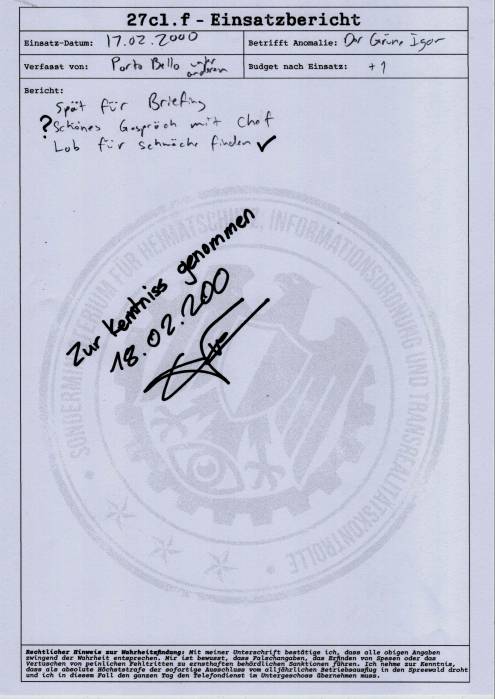 27c1.f - Einsatzbericht
Einsatz-Datum: 17.02.2000
Betrifft Anomalie: Der Grüne Igor
Verfasst von: Porto Bello unter anderem
Budget nach Einsatz: +1
Bericht:
Spät für Briefing
? Schönes Gespräch mit Chef
Lob für schwäche finden ✓
Zur Kenntniss genommen
18.02.200
SONDERMINISTERIUM FÜR HEIMATSCHUTZ, INFORMATIONSORDNUNG UND TRANSREALITÄTSKONTROLLE
Rechtlicher Hinweis zur Wahrheitsfindung: Mit meiner Unterschrift bestätige ich, dass alle obigen Angaben
zwingend der Wahrheit entsprechen. Mir ist bewusst, dass Falschangaben, das Erfinden von Spesen oder das
Vertuschen von peinlichen Fehltritten zu ernsthaften behördlichen Sanktionen führen. Ich nehme zur Kenntnis,
dass als absolute Höchststrafe der sofortige Ausschluss vom alljährlichen Betriebsausflug in den Spreewald droht
und ich in diesem Fall den ganzen Tag den Telefondienst im Untergeschoss übernehmen muss.